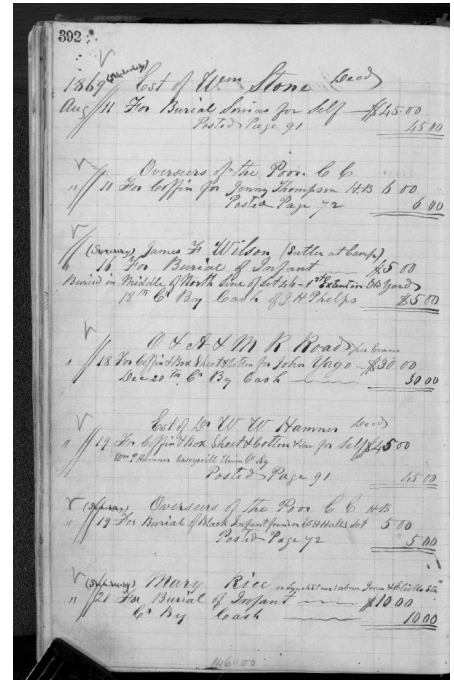 392
1869 Est of Wm Stone Decd
Aug 11 For Burial Services for Self $45.00
Posted Page 91 45 00
Overseers of the Poor C C
" 11 For Coffin for Jenny Thompson H.B 6 00
Posted Page 72 6 00
James F Wilson (Sutler at Camp)
" 16 For Burial of Infant $5 00
Buried in Middle of North Line of Lot 46 - 1st Extent in Old Yard
18th Cr By Cash of J H Phelps $5 00
O & A & M R Road
" 18 For Coffin & Box Sheet & Cotton for John Yago $30.00
Dec 20th Cr By Cash 30 00
Est of Dr W W Hamner Decd
" 19 For Coffin & Box Sheet & Cotton & for Self $45 00
Wm P Hamner Caseyville Union Co Ky
Posted Page 91 45 00
Overseers of the Poor C C H B
" 19 For Burial of Black Infant found on Lot 5 00
Posted Page 72 5 00
Mary Rice
" 21 For Burial of Infant $10 00
Cr By Cash 10 00
146 00